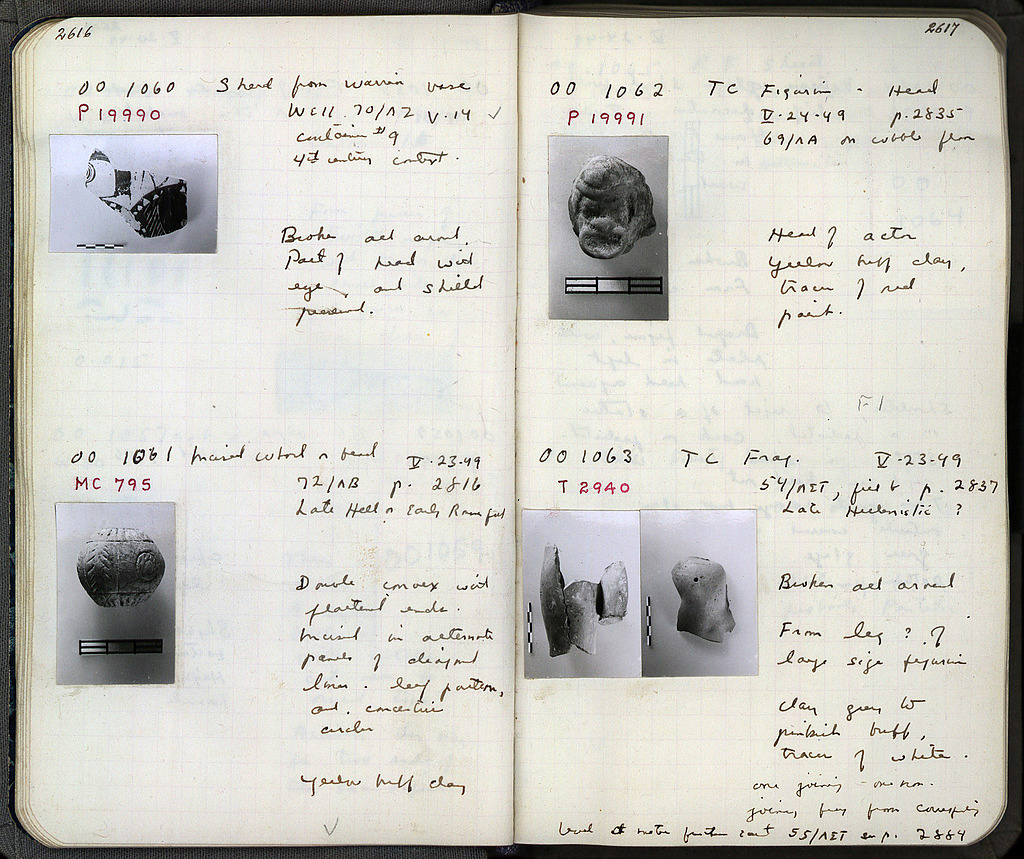 2616
OO 1060 Sherd from warrior vase
P 19990 Well 70/ΛΖ V.14 ✓
container #9
4th century context.
Broken all around.
Part of head with
eye, and shield
preserved.
OO 1061 Incised whorl or bead V-23-49
MC 795 72/ΛΒ p. 2816
Late Hell or Early Roman fill
Double convex with
flattened ends.
Incised in alternate
panels of diagonal
lines. leaf pattern,
and concentric
circles
Yellow buff clay
✓
2617
OO 1062 TC Figurine - Head
P 19991 V-24-49 p. 2835
69/ΛΑ on cobble floor
Head of actor
Yellow buff clay,
traces of red
paint.
F1
OO 1063 TC Frag. V-23-49
T 2940 54/ΛΣΤ, p. 2837
Late Hellenistic ?
Broken all around
From leg ? of
large size figurine
Clay grey to
pinkish buff,
traces of white.
one joining - one non-
joining frag from corresponding
level meter further east 55/ΛΣΤ p. 2884